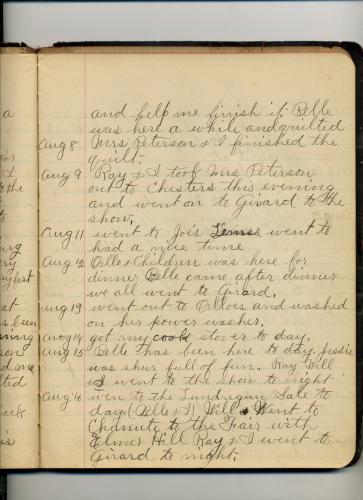 and help me finish it. Belle
was here a while and quilted
Aug 8 Mrs Peterson & I finished the
quilt.
Aug 9 Ray & I took Mrs Peterson
out to Chesters this evening
and went on to Girard to the
show.
Aug 11 went to Joes went to
had a nice time
Aug 12 Orlle & Children was here for
dinner Belle came after dinner
we all went to Girard.
aug 13 went out to Orlloes and washed
on her power washer.
aug 14 got my cook stover to day.
aug 15 Belle has been here to day. Jessie
was shur full of fun. Ray Will
& I went to the show to night
aug wen to the Sale to
day (Belle & I) Will Went to
Chanute to the Fair with
Elmer Hill Ray & I went to
Girard to night.